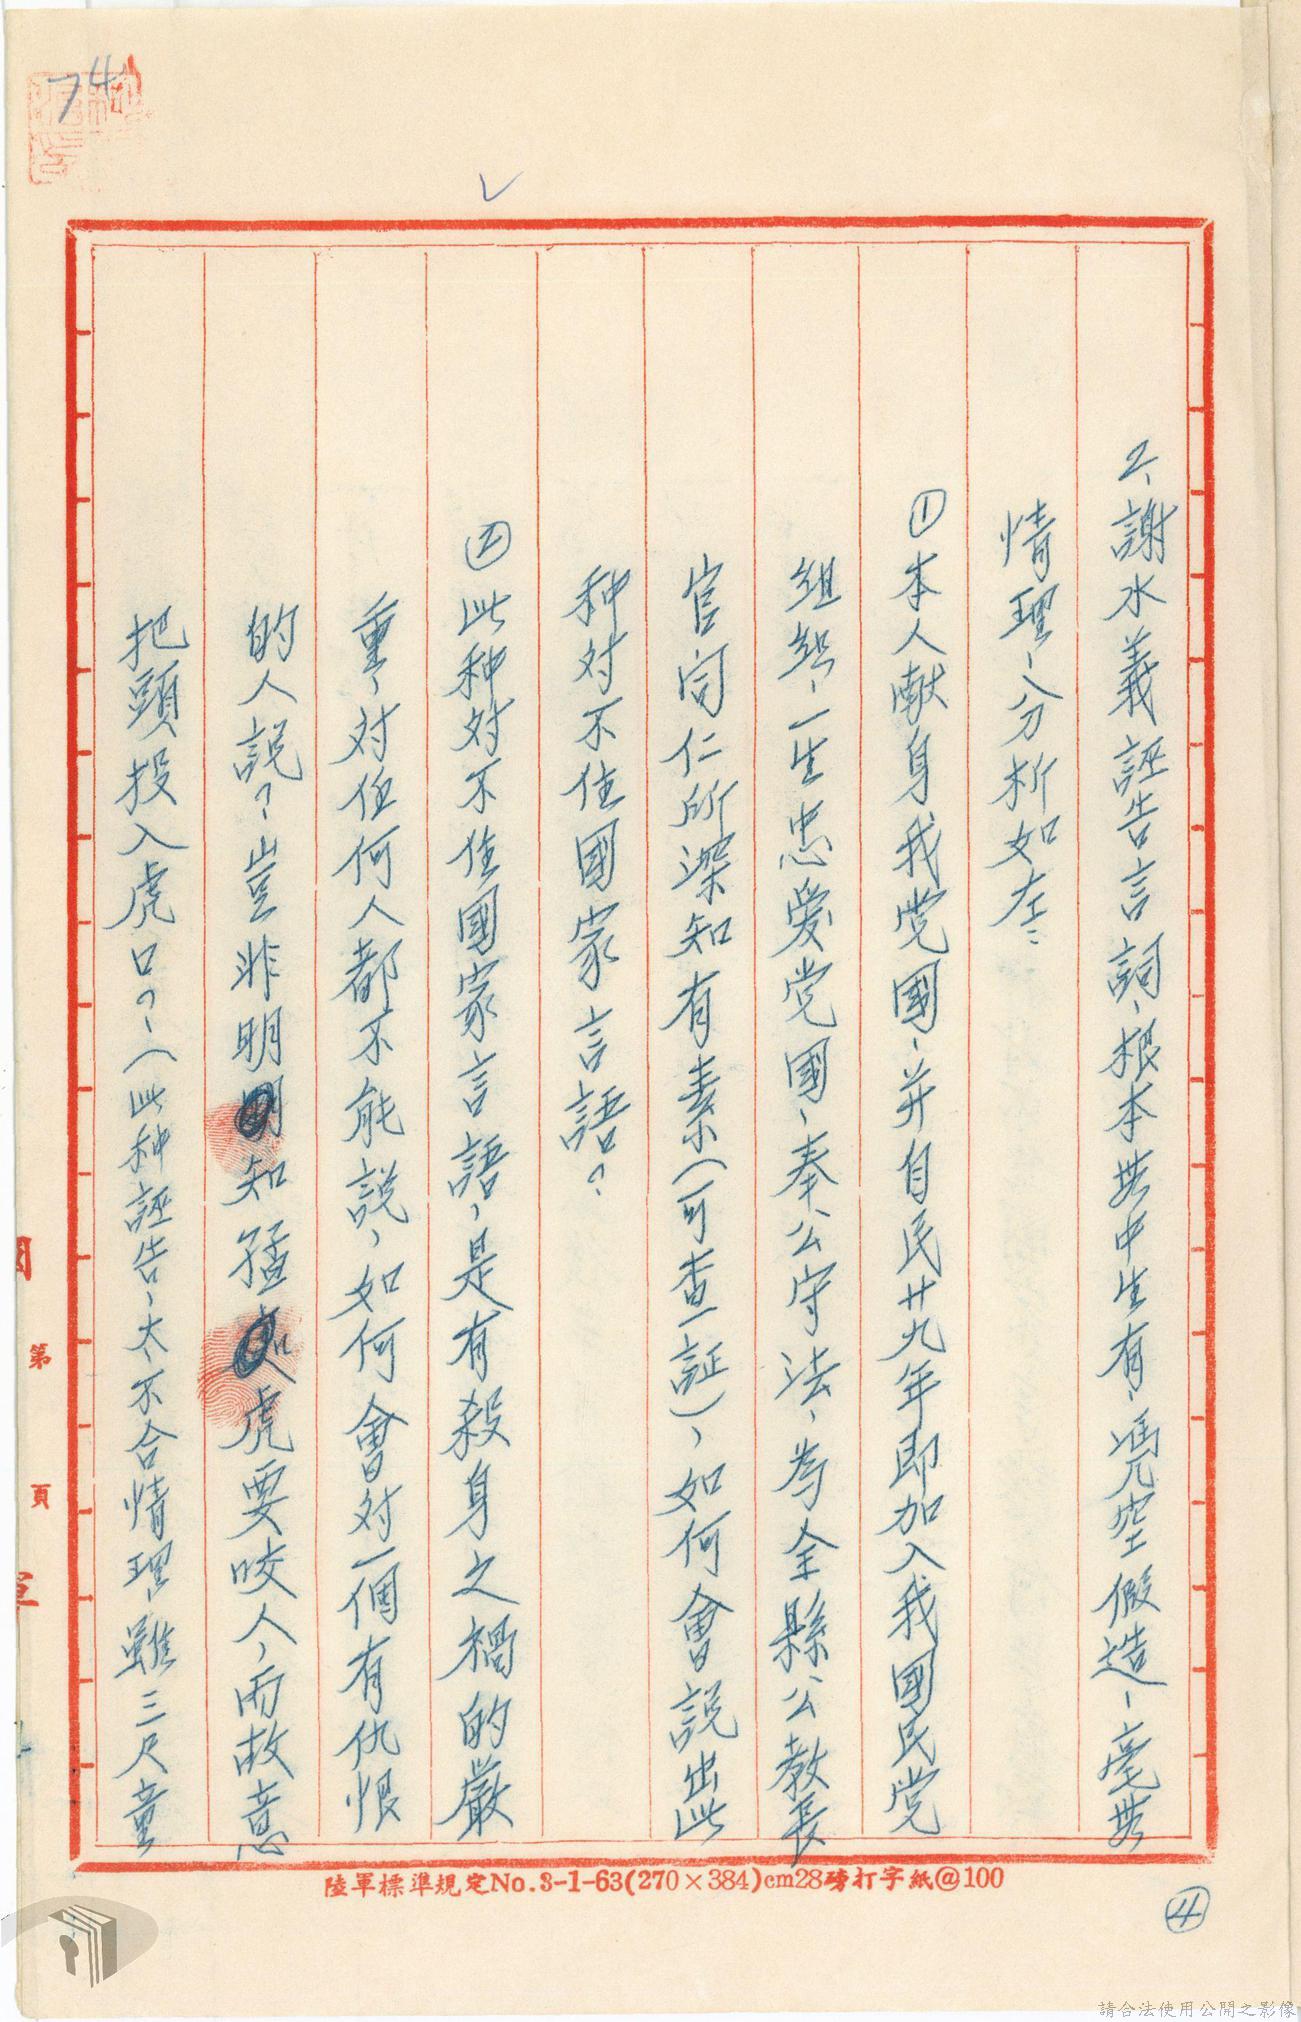 74
2、謝水義誣告言詞、根本無中生有、馮空假造、毫無
情理、分析如左：
①本人献身我党國、并自民廿九年即加入我國民党
組織、一生忠爱党國、奉公守法、為全縣公教長
官同仁所深知有素(可查証)、如何會説出此
种对不住國家言語？
②此种对不住國家言語，是有殺身之禍的嚴
重，对任何人都不能説，如何會对一個有仇恨
的人説？豈非明知猛虎要咬人，而故意
把頭投入虎口？(此种誣告，太不合情理，雖三尺童
第 頁
陸軍標準規定No.3-1-63(270×384)cm28磅打字紙@100
④
請合法使用公開之影像